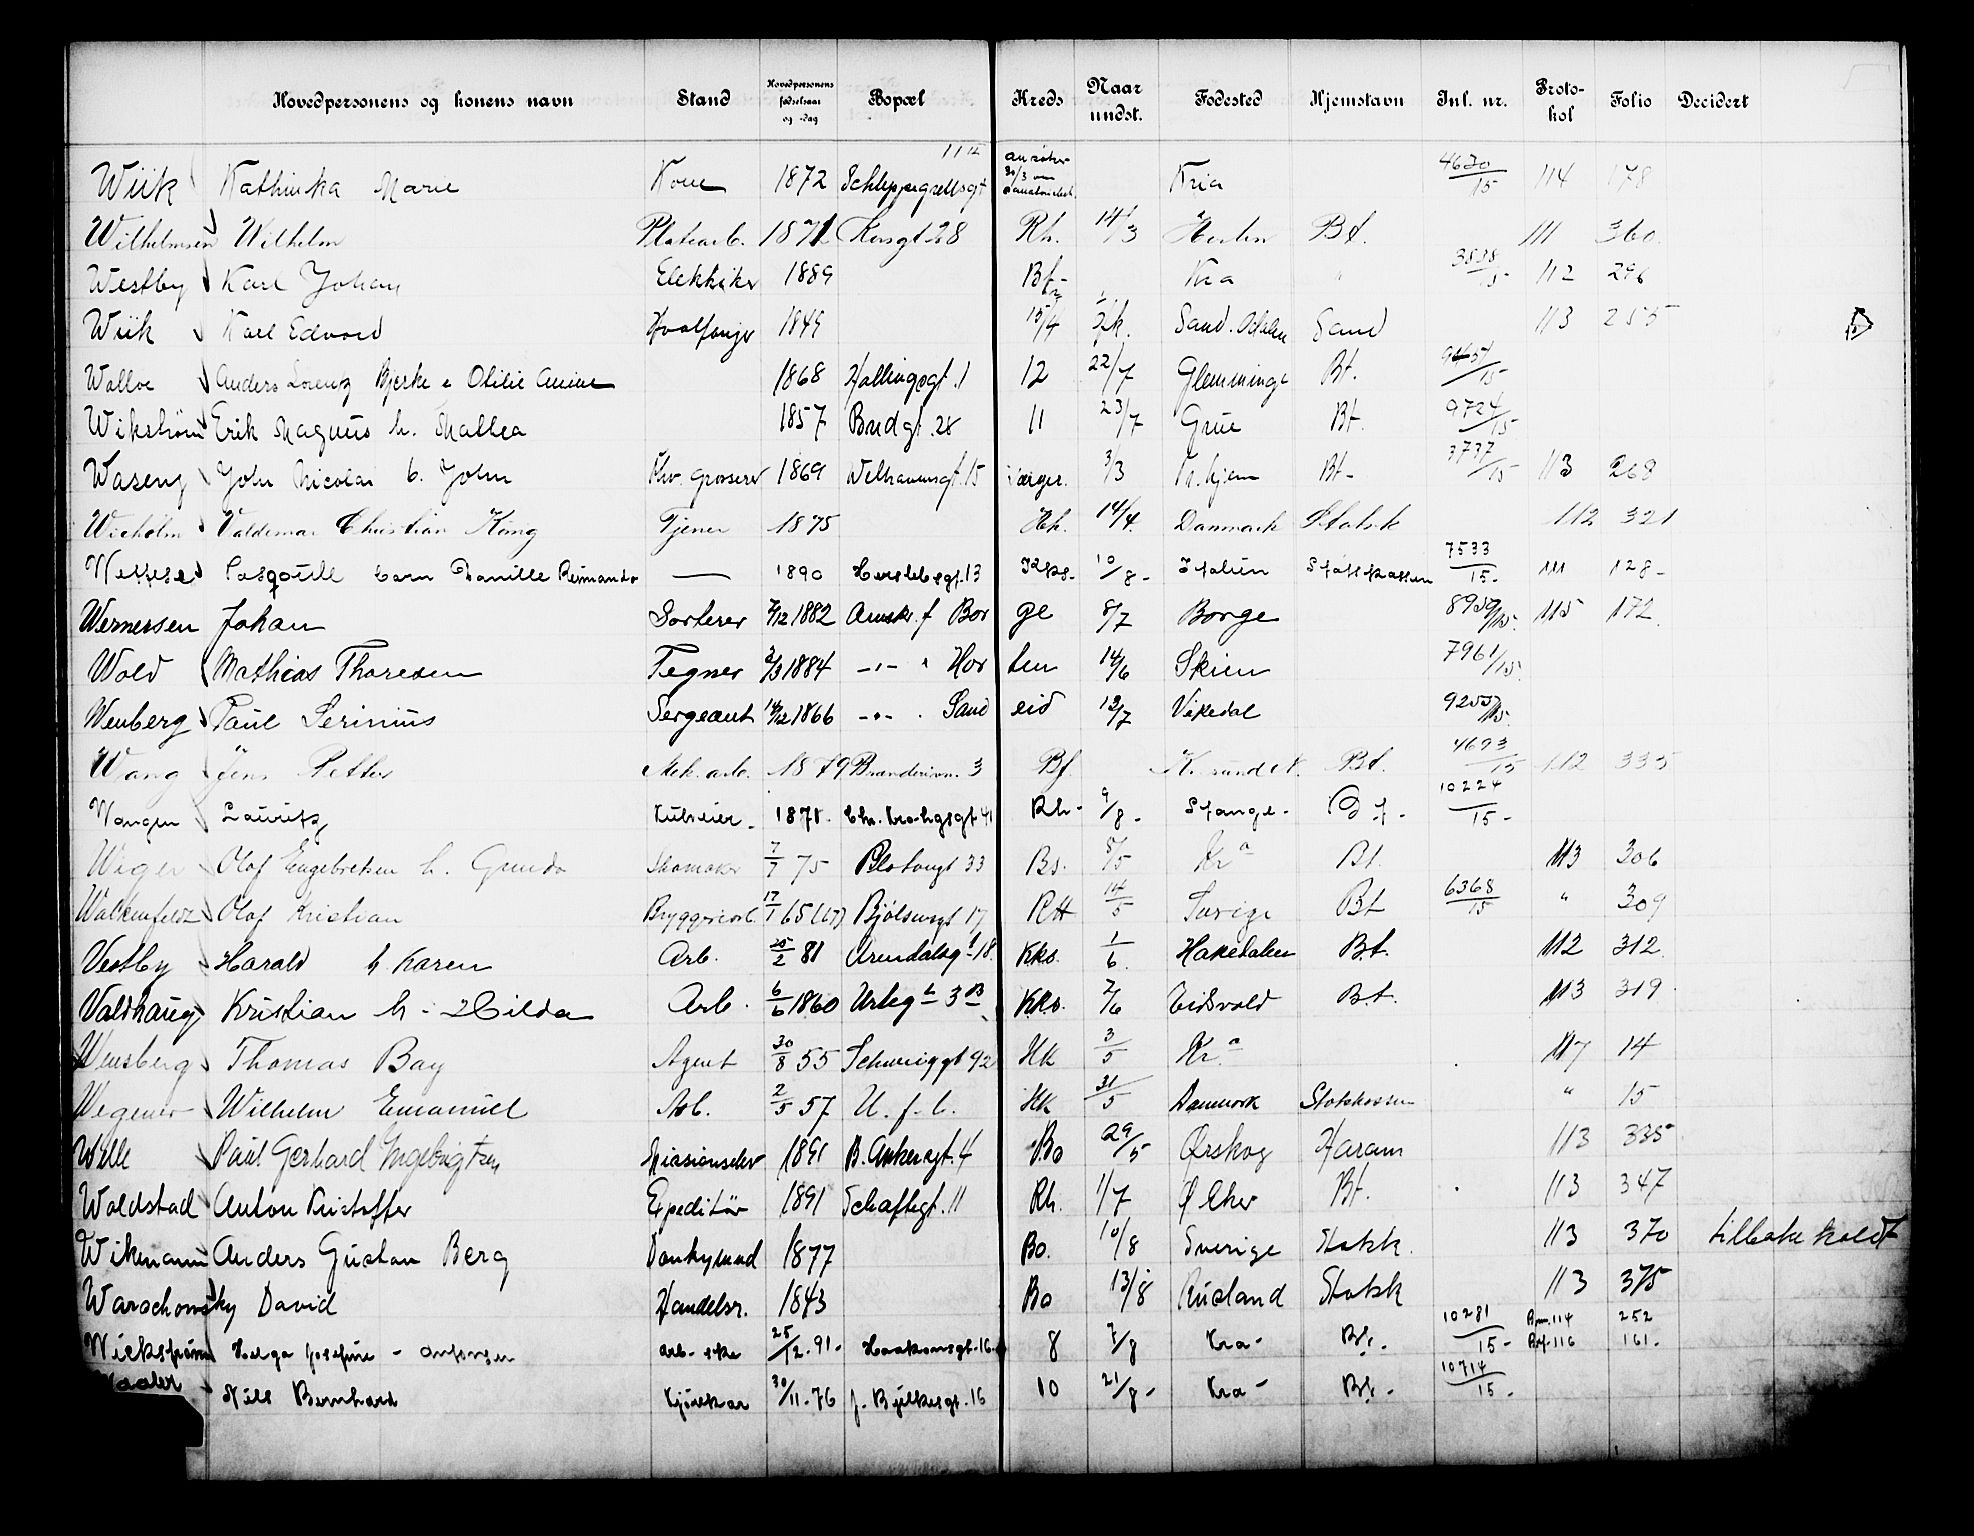 Hovedpersonens og konens navn Stand Hovedpersonens fødselsaar og -dag Bopæl Kreds Naar undst. Fødested Hjemstavn Inl. nr. Protokol Folio Decidert
Wiik Kathinka Marie Kone 1872 Schleppegrellsgt 11 Kria 4620/15 114 178
Wilhelmsen Wilhelm Platearb. 1871 28 Rh. 14/3 Bt. 111 360
Westby Karl Johan 1889 Bt Kra " 3838/15 112 296
Wiik Karl Edvard Hvalfanger 1849 15/4 Sand. Odalen Sand 113 255
Walløe Anders Lorentz Bjerke e Otilie Amine 1868 Hallingsgt. 1 12 22/7 Glemminge Bt. 9457/15
Wikstrøm Erik Magnus h. Mathea 1857 Brudgt. 28 11 23/7 Grue Bt. 9724/15
Waseng John Nicolai b. John Fhv. Grosserer 1869 Welhavensgt. 15 Værger. 3/3 Tr.hjem Bt- 3737/15 113 268
Wicholm Valdemar Christian König Tjener 1875 14/4 Danmark Statsk 112 321
barn Danille Reimando — 1890 Herslebsgt. 13 Kks. 10/8- Italien Statskassen 7533/15- 111 128-
Wernersen Johan Sorterer 7/12 1882 Amsk. f Borge 8/7 Borge 8959/15. 115 172.
Wold Mathias Thoresen Tegner 2/3 1884 -"- " Horten 14/6 Skien 7961/15.
Wenberg Paul Serinius Sergeant 14/12 1866 -"- . Sandeid 12/7 Vikedal 9255/15.
Wang Jens Petter Mek. arb. 1879 3 Bf. Kr.sund N. Bt. 4693/15 112 335
Wangen Lauritz 1871. Chr. Krohgsgt 41 Rh- 9/8- Stange- Bf- 10224/15-
Weger Olaf Engebretsen h. Gunda Skomaker 7/7 75 33 Bs. 5/5 Kr a Bt. 113 306
Walkenfeldt Olaf Kristian Bryggeriarb. 17/1 65 Bjølsengt 17 RH 14/5 Sverige Bt 6368/15 " 309
Vestby Harald h. Karen Arb. 25/2 81 Arendalsgt 18. Kks. 1/6. Hakedalen Bt. 112 312.
Valdhaug Kristian h. Hilda Arb. 6/6 1860 Urteg t 3 B Kks. 2/6 Eidsvold B.t. 113 319
Wensberg Thomas Bay Agent 30/8 55 Schweiggt 92 HK 3/5 Kr. a 117 14
Wegener Wilhelm Emanuel Arb. 2/5 57 U. f. b. HK 31/5 Danmark Statskassen " 15
Wille Paul Gerhard Ingebrigtsen Missionselev 1891 B. Ankersgt. 4 Bo 29/5 Ørskog Haram 113 335
Woldstad Anton Kristoffer Expeditør 1891 Schaftegt. 11 Rh. 1/7 Ø Aker Bt. 113 347
Wikmann Anders Gustav Berg 1877 Bo. 10/8 Sverige Statsk. 113 370 tilbakekaldt
Warschowsky David Handelsr. 1843 Bo 13/8 Rusland Statsk 113 375
Wickstrøm Helga Josefine - Antonsen arb- ske 25/12-91- Haakonsgt-16- 8 7/8 Kra- Bt- 10281/15- 114 252
116 161-
Nils Bernhard Kjørekar 30/11-76 f. Bjelkesgt-16 10 21/8- Kra- Bt- 10714/15-